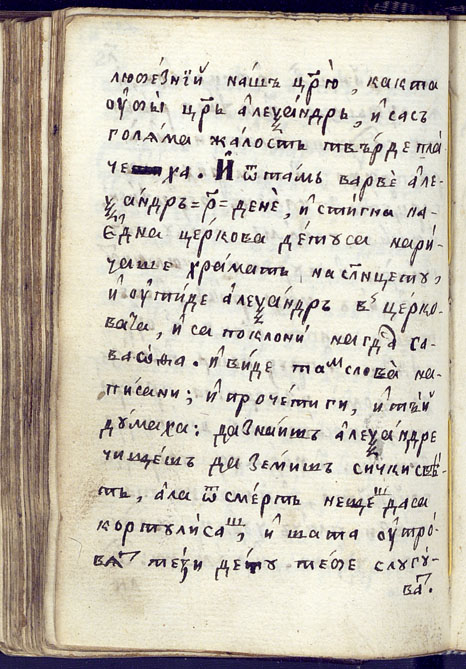 любе́знїй на́шъ цр҃ю̀, ка́кта
оу҆бы̀ цр҃ь алеѯа́ндрь, и҆ сасъ
голѧ́ма жа́лость твъ́рде пла́
чеха. И҆ ѿта́мь варвѐ але-
ѯа́ндръ=г҃=денѐ, и҆ сти́гна на-
є҆дна̀ це́ркова де́туса нари́-
чаше хра́матъ, на сл҃нцету,
и҆ оу҆ти́де алеѯа́ндръ в це́рко-
вата, и҆ са поклонѝ на гд҃а са-
ваѡѳа. и҆ ви́де там слова̀ на-
писани; и҆ проче́ти ги, и҆ ті́й
ду́маха: да зна́ишъ алеѯа́ндре
чищешъ да зе́мишъ си́чки свѣ́-
тъ, ала ѿ сме́рть нещеш да са
кортули́саш, и҆ ща́та оу҆тро́-
ва те́ѯи де́ту те́бе слугу́-
ва.